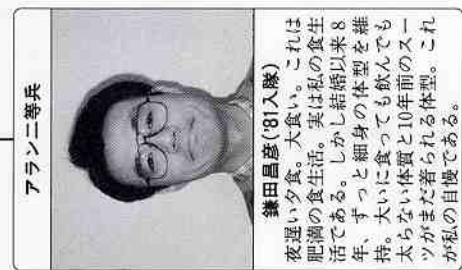 アラン二等兵
鎌田昌彦('81入隊)
夜遅い夕食。大食い。これは
肥満の食生活。実は私の食生
活である。しかし結婚以来8
年、ずっと細身の体型を維
持。大いに食っても飲んでも
太らない体質と10年前のスー
ツがまだ着られる体型。これ
が私の自慢である。